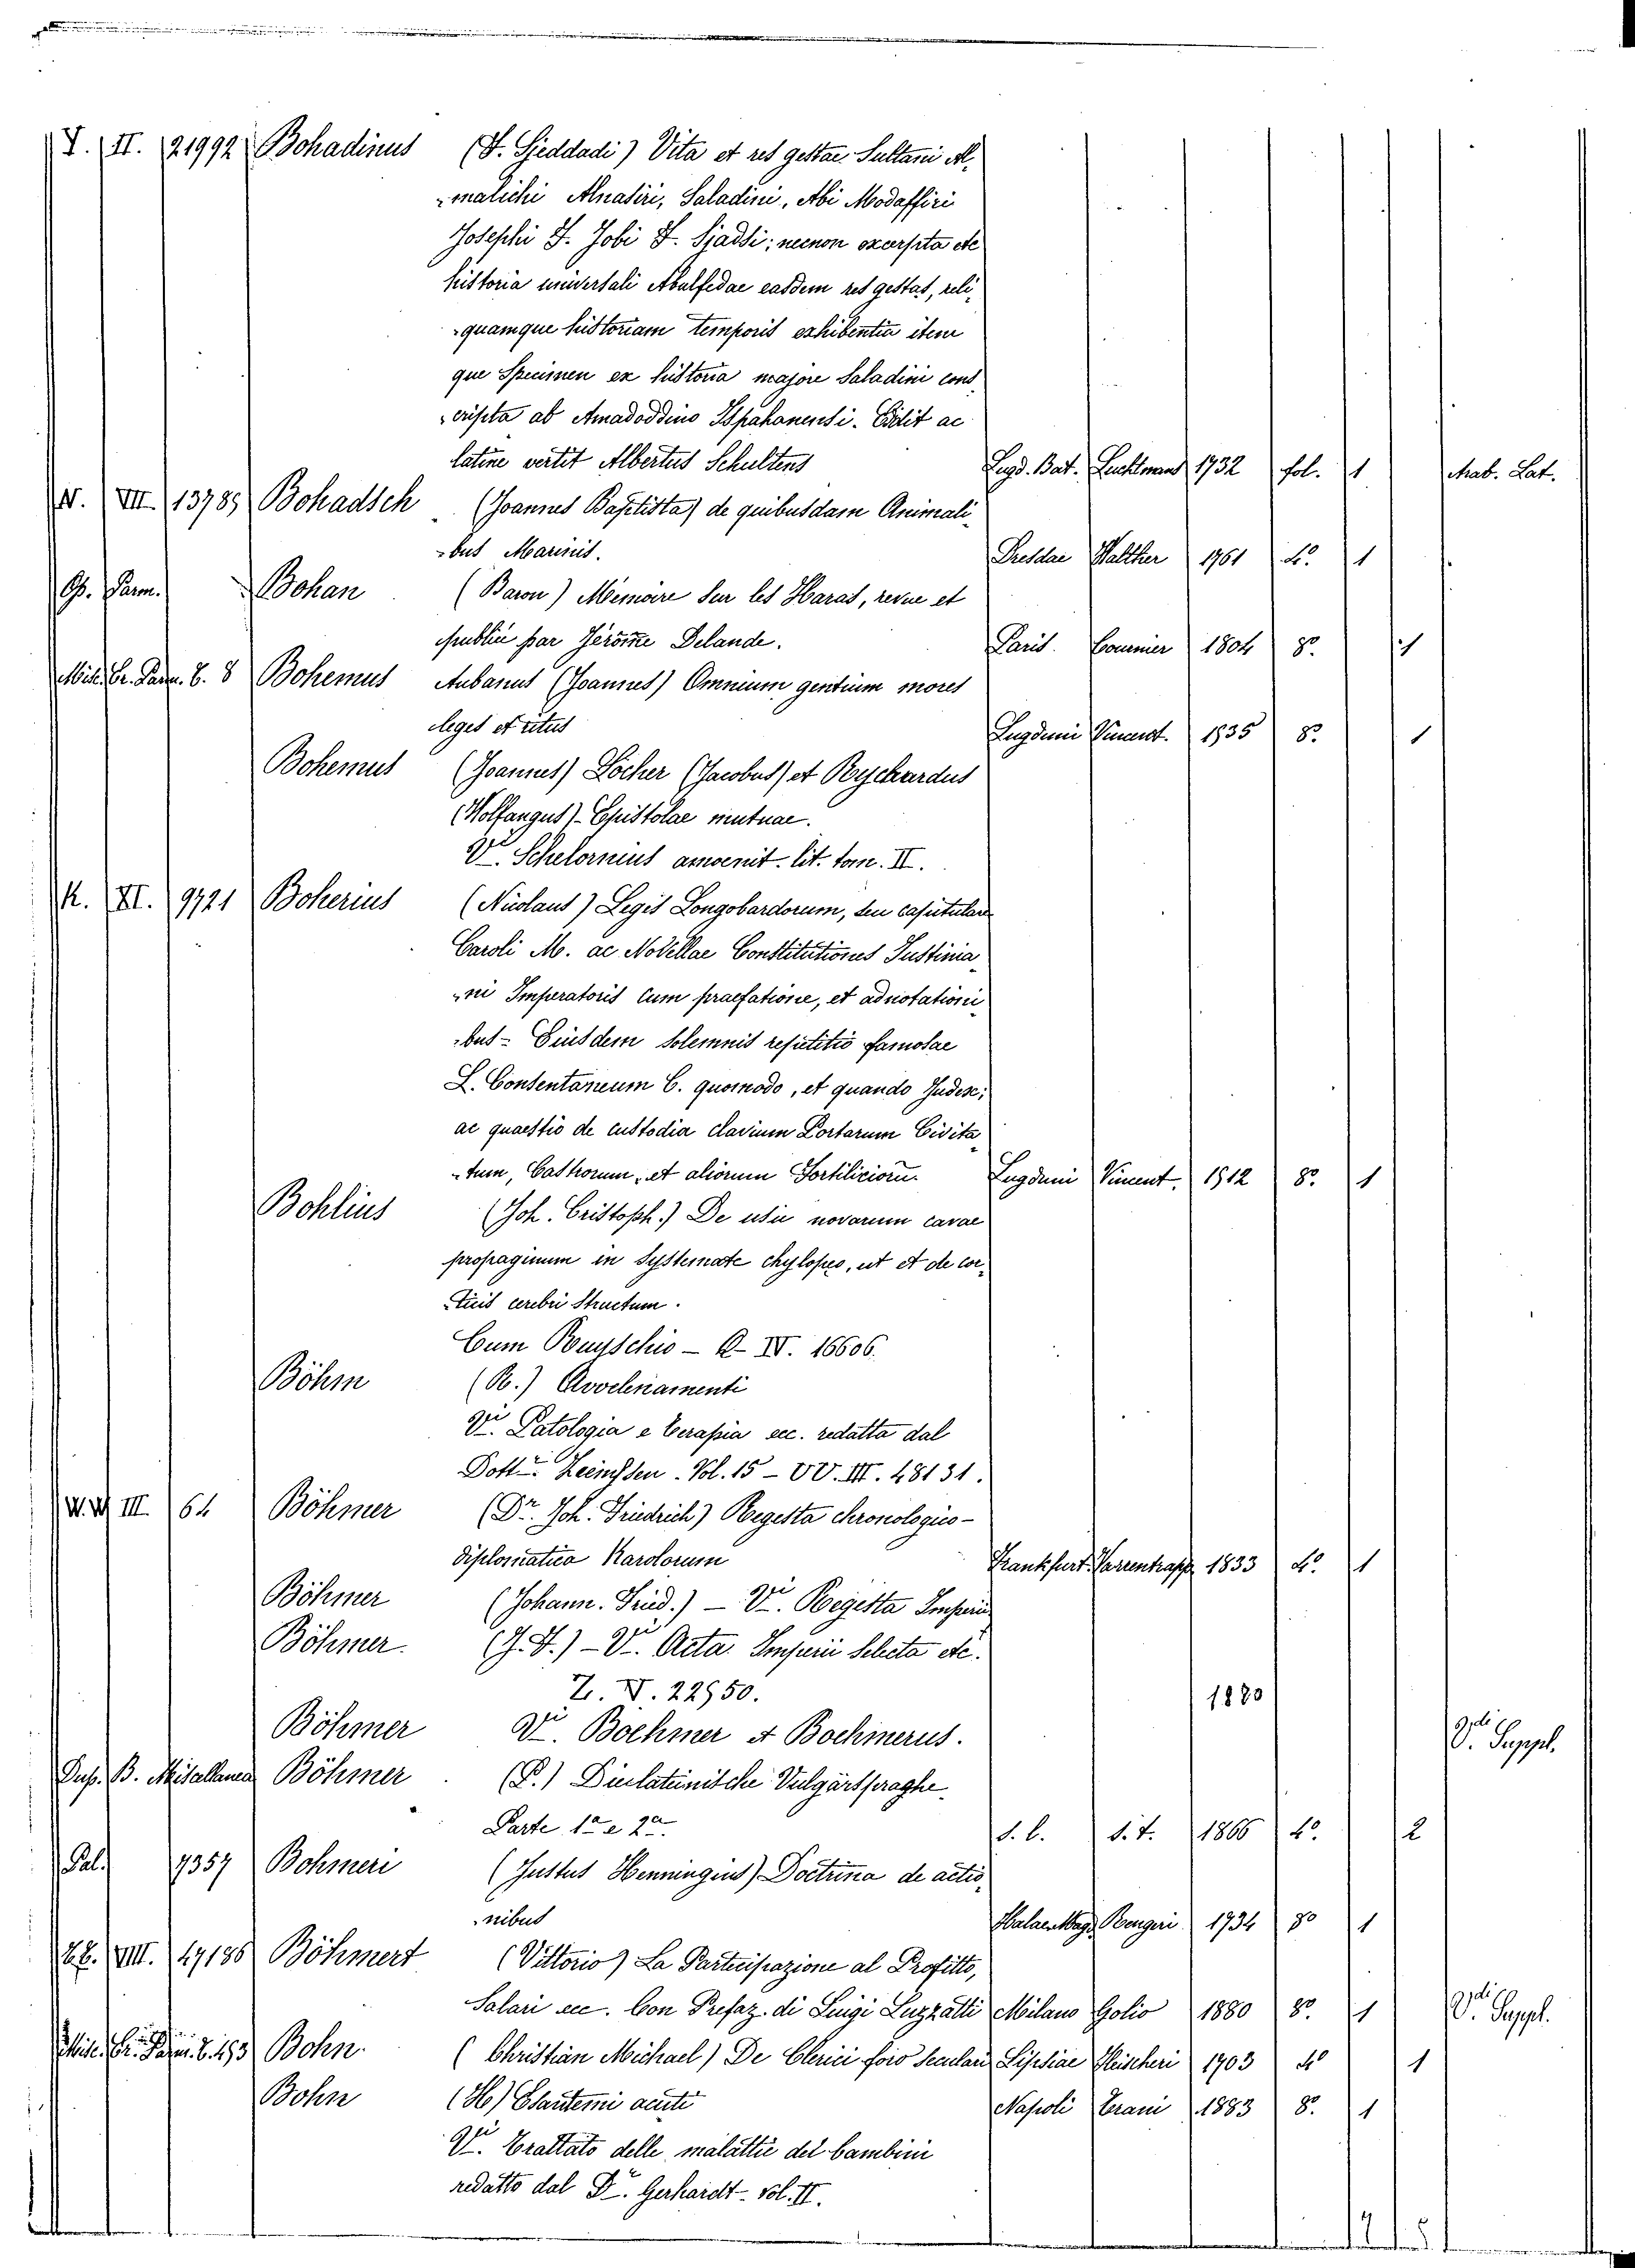 I. II. 21992 Bohadinus (F. Sjeddadi) Vita et res gestae Sultani Al-
-malichi Alnasiri, Saladini, Abi Modaffiri
Josephi F. Jobi F. Sjadsi; necnon excerpta ete
historia universali Abulfedae easdem res gestas, reli-
-quamque historiam temporis exhibentia item
que Specimen ex historia majore Saladini cons-
-cripta ab Amadoddino Ispahanensi. Edidit ac
latine vertit Albertus Schultens Lugd. Bat. Luchtmans 1732 fol. 1 Arab. Lat.
N. VII. 13785 Bohadsch (Joannes Baptista) de quibusdam Animali-
-bus Marinis. Dresdae Walther 1761 4º 1
Gb. Parm. Bohan (Baron) Mémoire sur les Haras, revue et
publiée par Jérôme Delande. Paris. Courcier 1804 8º 1
Misc. Er. Parm. b. 8 Bohemus Aubanus (Joannes) Omnium gentium mores
leges et ritus Lugduni Vincent. 1535 8º 1
Bohemus (Joannes) Löcher (Jacobus) et Rychardus
(Wolfangus) - Epistolae mutuae.
Vi. Schelornius amoenit. lit. tom. II.
K. XI. 9721 Boherius (Nicolaus) Legis Longobardorum, seu capitulare
Caroli M. ac Novellae Constitutiones Justinia-
-ni Imperatoris cum praefatione, et adnotationi-
-bus - Eiusdem Solemnis repetitio famosae
L. Consentaneum C. quomodo, et quando Judex;
ac quaestio de custodia clavium Portarum Civita-
-tum, Castrorum, et aliorum Fortiliciorũ. Lugduni Vincent. 1512 8º 1
Bohlius (Joh. Cristoph.) De usu novarum cavae
propaginum in Systemate chylopeo, ut et de cor-
-ticis cerebri Structum.
Cum Ruyschio - Q. IV. 16606.
Böhm (R.) Avvelenamenti
Vi. Patologia e Terapia ecc. redatta dal
Dottr. Zeimssen. Vol. 15 - VV. III. 48131.
W.W. III. 64 Böhmer (Dr. Joh. Friedrich) Regesta chronologico-
diplomatica Karolorum Frankfurt. Varrentrapp. 1833 4º 1
Böhmer (Johann. Fried.) - Vi. Regesta Imperii
Böhmer. (J. F.) - Vi. Acta Imperii Selecta etc.
Z. V. 22950. 1880
Böhmer Vi. Boehmer et Bochmerus. Vedi Suppl.
Dup. B. Miscellanea Böhmer (P.) Dielateinische Vulgärspraghe.
Parte 1a e 2a. s. l. s. t. 1866 4º 2
Pal. 7357 Bohmeri (Justus Henningius) Doctrina de actio-
-nibus Halae Mag. Rengeri 1734 8º 1
EE. VIII. 47186 Böhmert (Vittorio) La Partecipazione al Profitto,
Salari ecc. Con Prefaz. di Luigi Luzzatti Milano Golio 1880 8º 1 Vedi Suppl.
Misc. Er. Parm. b. 193 Bohn. (Christian Michael) De Clerici foro Seculari Lipsiae Fleischeri 1703 4º 1
Bohn (H) Esantemi acuti Napoli Trani 1883 8º 1
Vi. Trattato delle malattie dei bambini
redatto dal Dr. Gerhardt - Vol. II.
17 5